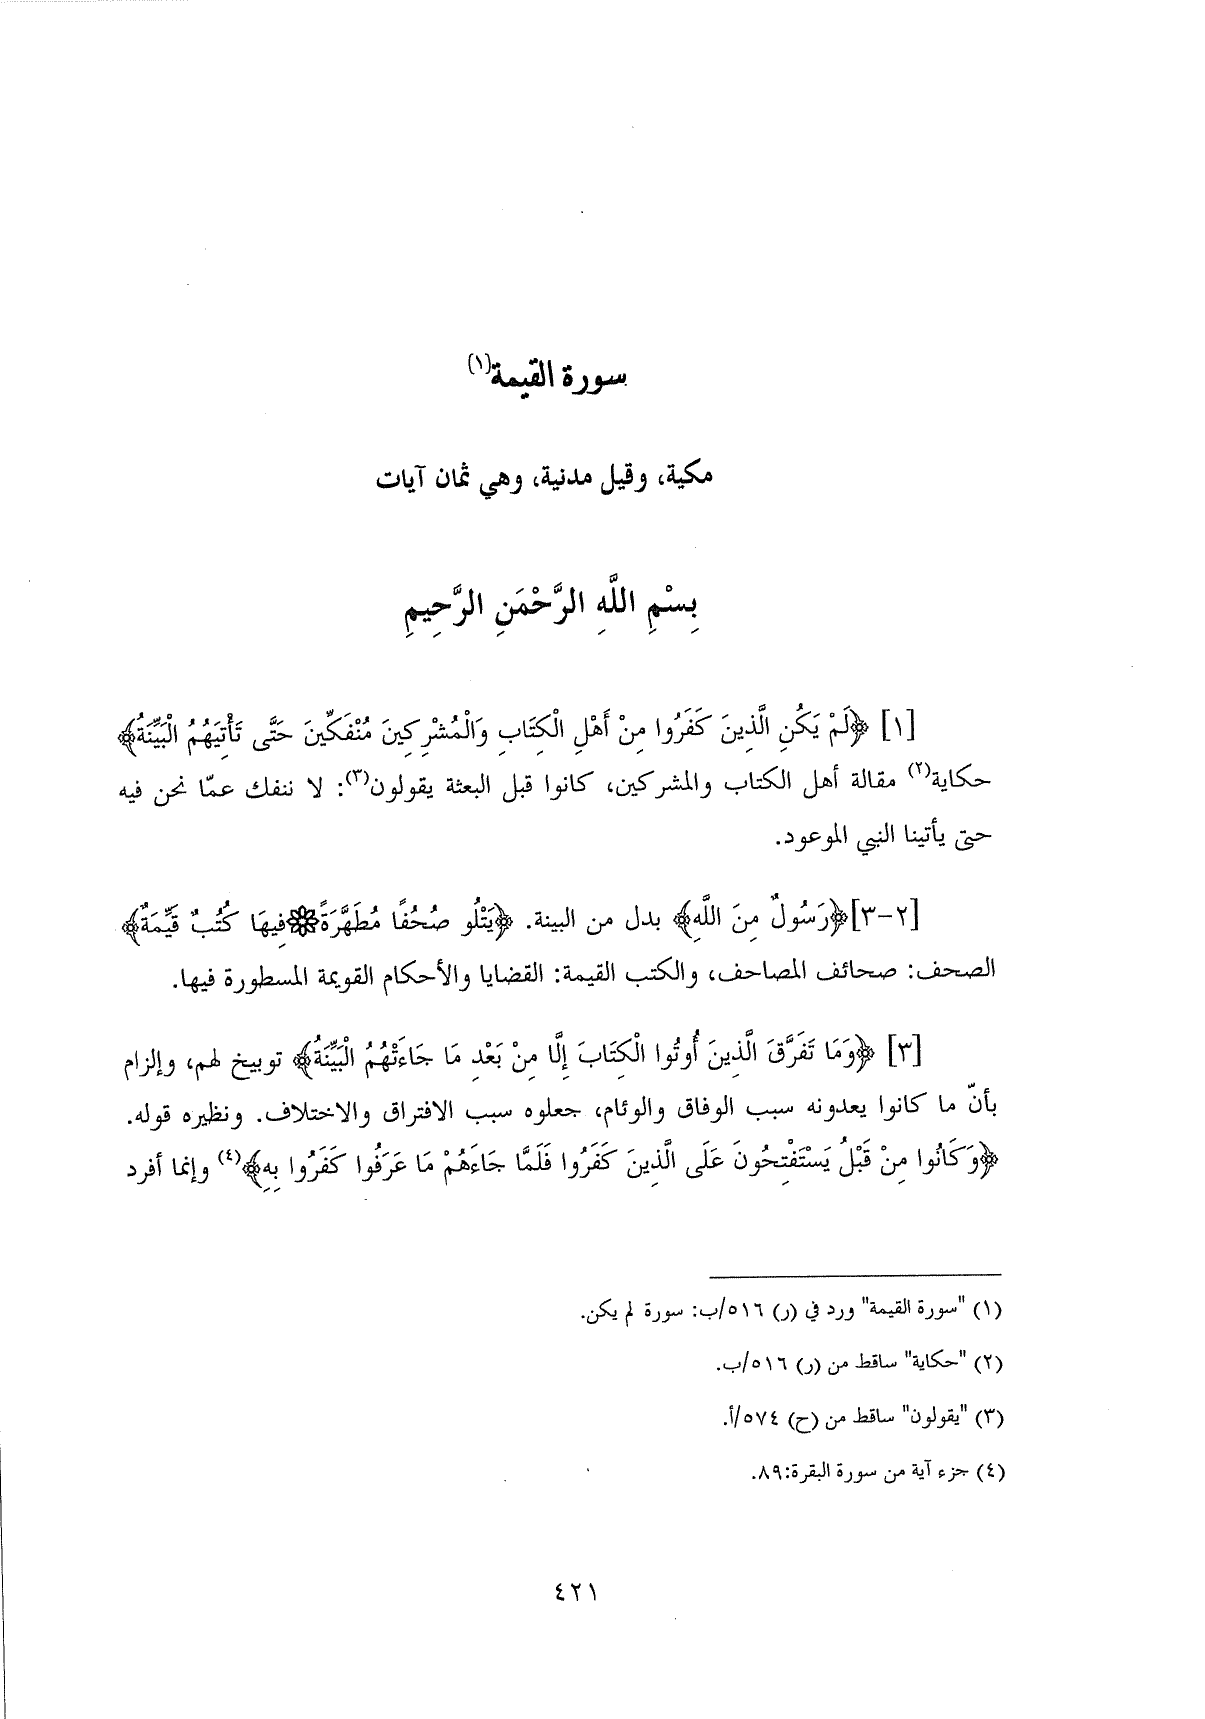 سورة القيمة(١)
مكية، وقيل مدنية، وهي ثمان آيات
بِسْمِ اللَّهِ الرَّحْمَنِ الرَّحِيمِ
[١] ﴿لَمْ يَكُنِ الَّذِينَ كَفَرُوا مِنْ أَهْلِ الْكِتَابِ وَالْمُشْرِكِينَ مُنْفَكِّينَ حَتَّى تَأْتِيَهُمُ الْبَيِّنَةُ﴾
حكاية(٢) مقالة أهل الكتاب والمشركين، كانوا قبل البعثة يقولون(٣): لا ننفك عمّا نحن فيه
حتى يأتينا النبي الموعود.
[٢-٣]﴿رَسُولٌ مِنَ اللَّهِ﴾ بدل من البينة. ﴿يَتْلُو صُحُفًا مُطَهَّرَةً❁فِيهَا كُتُبٌ قَيِّمَةٌ﴾
الصحف: صحائف المصاحف، والكتب القيمة: القضايا والأحكام القويمة المسطورة فيها.
[٣] ﴿وَمَا تَفَرَّقَ الَّذِينَ أُوتُوا الْكِتَابَ إِلَّا مِنْ بَعْدِ مَا جَاءَتْهُمُ الْبَيِّنَةُ﴾ توبيخ لهم، وإلزام
بأنّ ما كانوا يعدونه سبب الوفاق والوئام، جعلوه سبب الافتراق والاختلاف. ونظيره قوله.
﴿وَكَانُوا مِنْ قَبْلُ يَسْتَفْتِحُونَ عَلَى الَّذِينَ كَفَرُوا فَلَمَّا جَاءَهُمْ مَا عَرَفُوا كَفَرُوا بِهِ﴾(٤) وإنما أفرد
(١) "سورة القيمة" ورد في (ر) ٥١٦/ب: سورة لم يكن.
(٢) "حكاية" ساقط من (ر) ٥١٦/ب.
(٣) "يقولون" ساقط من (ح) ٥٧٤/أ.
(٤) جزء آية من سورة البقرة:٨٩.
٤٢١